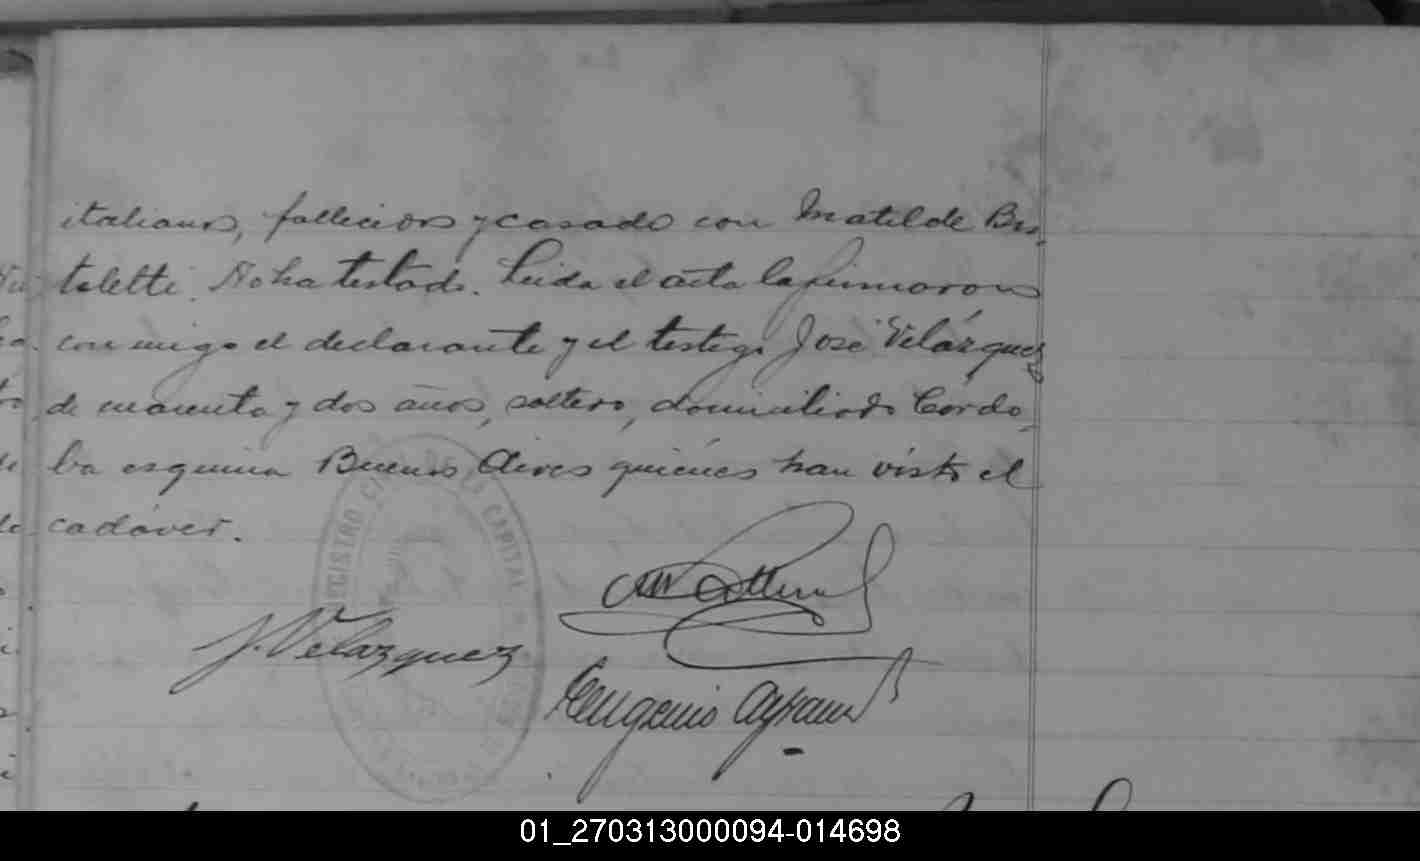 italianos, fallecidos y casado con Matilde Bru-
taletti. No ha testado. Leída el acta la firmaron
conmigo el declarante y el testigo José Velázquez
de cuarenta y dos años, soltero, domiciliado Córdo-
ba esquina Buenos Aires quiénes han visto el
cadáver.
REGISTRO CIVIL DE LA CAPITAL
J. Velazquez
Eugenio
01_270313000094-014698